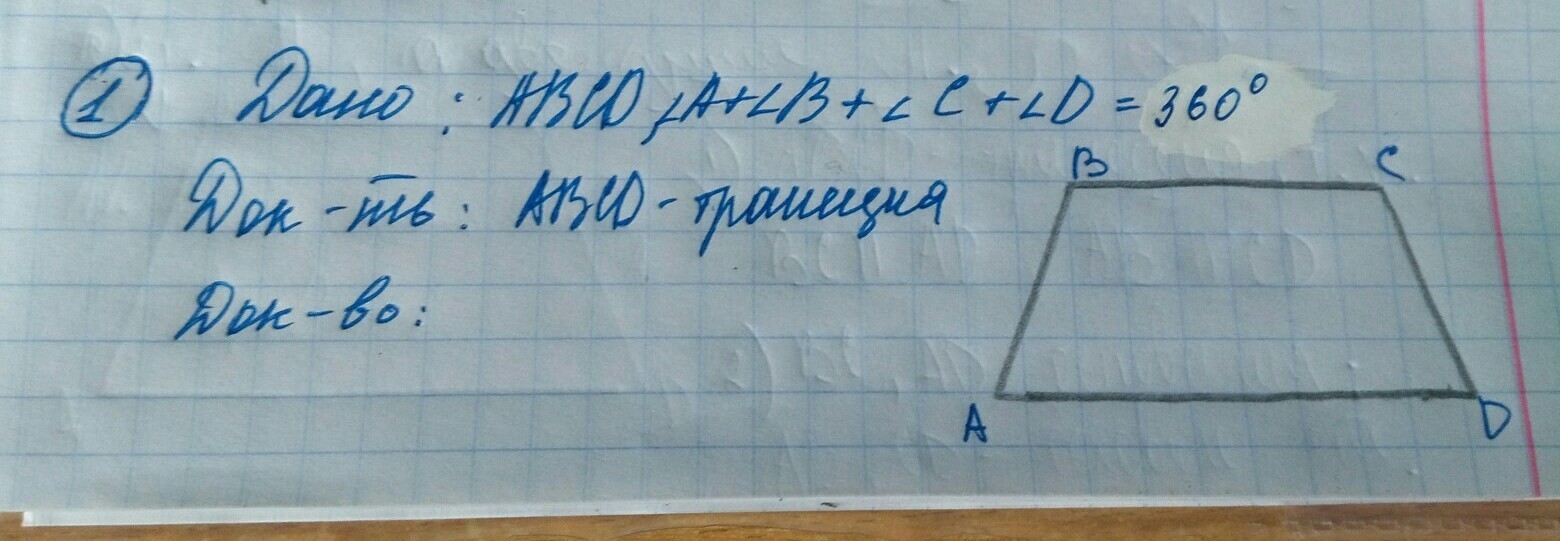 1 Дано: ABCD, ∠A+∠B+∠C+∠D=360°
Док-ть: ABCD-трапеция
Док-во:
B C
A D